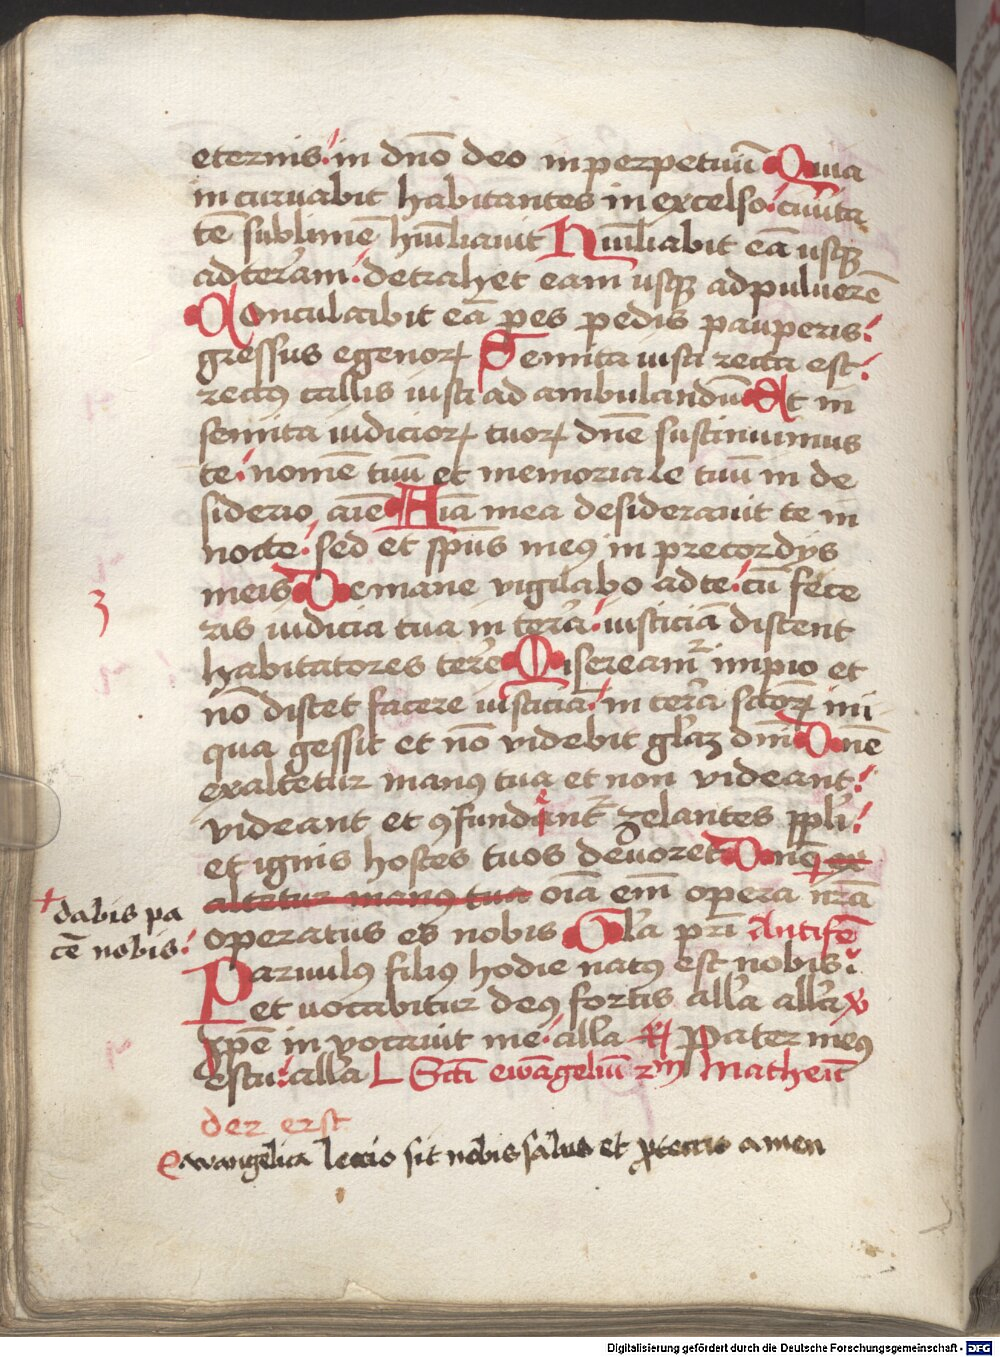 eternis in dn̄o deo inperpetuū Quia
in curuabit habitantes in excelso ciuita
tē sublimē hūiliauit Hūiliabit eā usq3
adterᷓam detrahet eam usq3 adpuluerē
Conculcabit eā pes pedis pauperis
gressus egenoꝝ Semita iusti recta est
rectꝰ callis iusti ad ambulandū Et in
semita iudicioꝝ tuoꝝ dn̄e sustinuimus
te nomē tuū et memoriale tuū in de
siderio aīe Aīa mea desiderauit te in
nocte sed et sp̄us meꝰ in precordijs
meis De mane vigilabo adte cū fece
ris iudicia tua in terᷓa iusticiā discent
habitatores terᷓe Misereamᷣ impio et
nō discet facere iusticiā in terᷓa sctōꝝ ini
qua gessit et nō videbit glaꝫ dnī Dn̄e
exaltetur manꝰ tua et non videant
videant et ꝯfundantᷣ zelantes ppl̄i
et ignis hostes tuos deuoret Dn̄e ex
altetur manꝰ tua oīa em̄ opera nr̄a
operatus es nobis Gl̄a pri Antifē
+ dabis pa
cē nobis
Paruulꝰ filiꝰ hodie natꝰ est nobis
et uocabitur deꝰ fortis all̄a all̄a v̄
xp̄e in vocauit me all̄a R̄ Pater meꝰ
es tu all̄a L Scti ewāgeliū 2m Matheū
der erst
Ewangelica leccio sit nobis salus et ꝓteccio amen
3
Digitalisierung gefördert durch die Deutsche Forschungsgemeinschaft - DFG